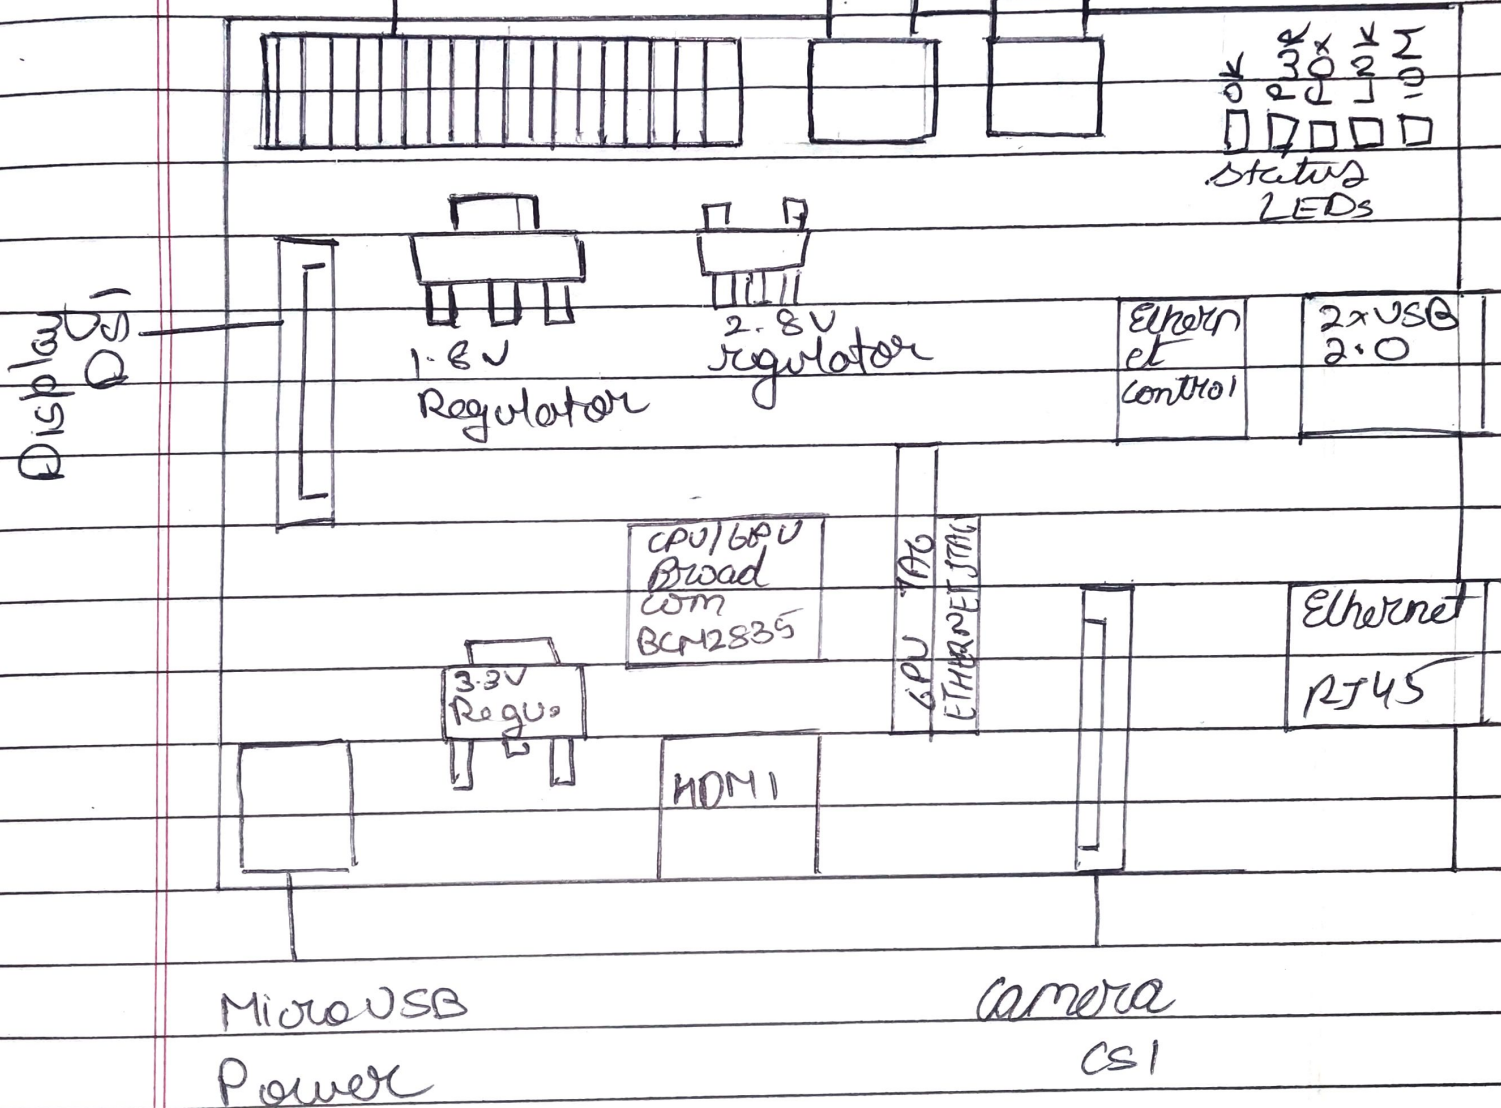 OK
PWR
FDX
LNK
10M
Status
LEDs
Display
DSI
1.8V
Regulator
2.8V
rgulator
Ethern
et
control
2xUSB
2.0
CPU/GPU
Broad
com
BCM2835
GPU TAG
ETHERNET JTAG
Ethernet
RJ45
3.3V
Regu.
HDMI
MicroUSB
Power
Camera
CSI